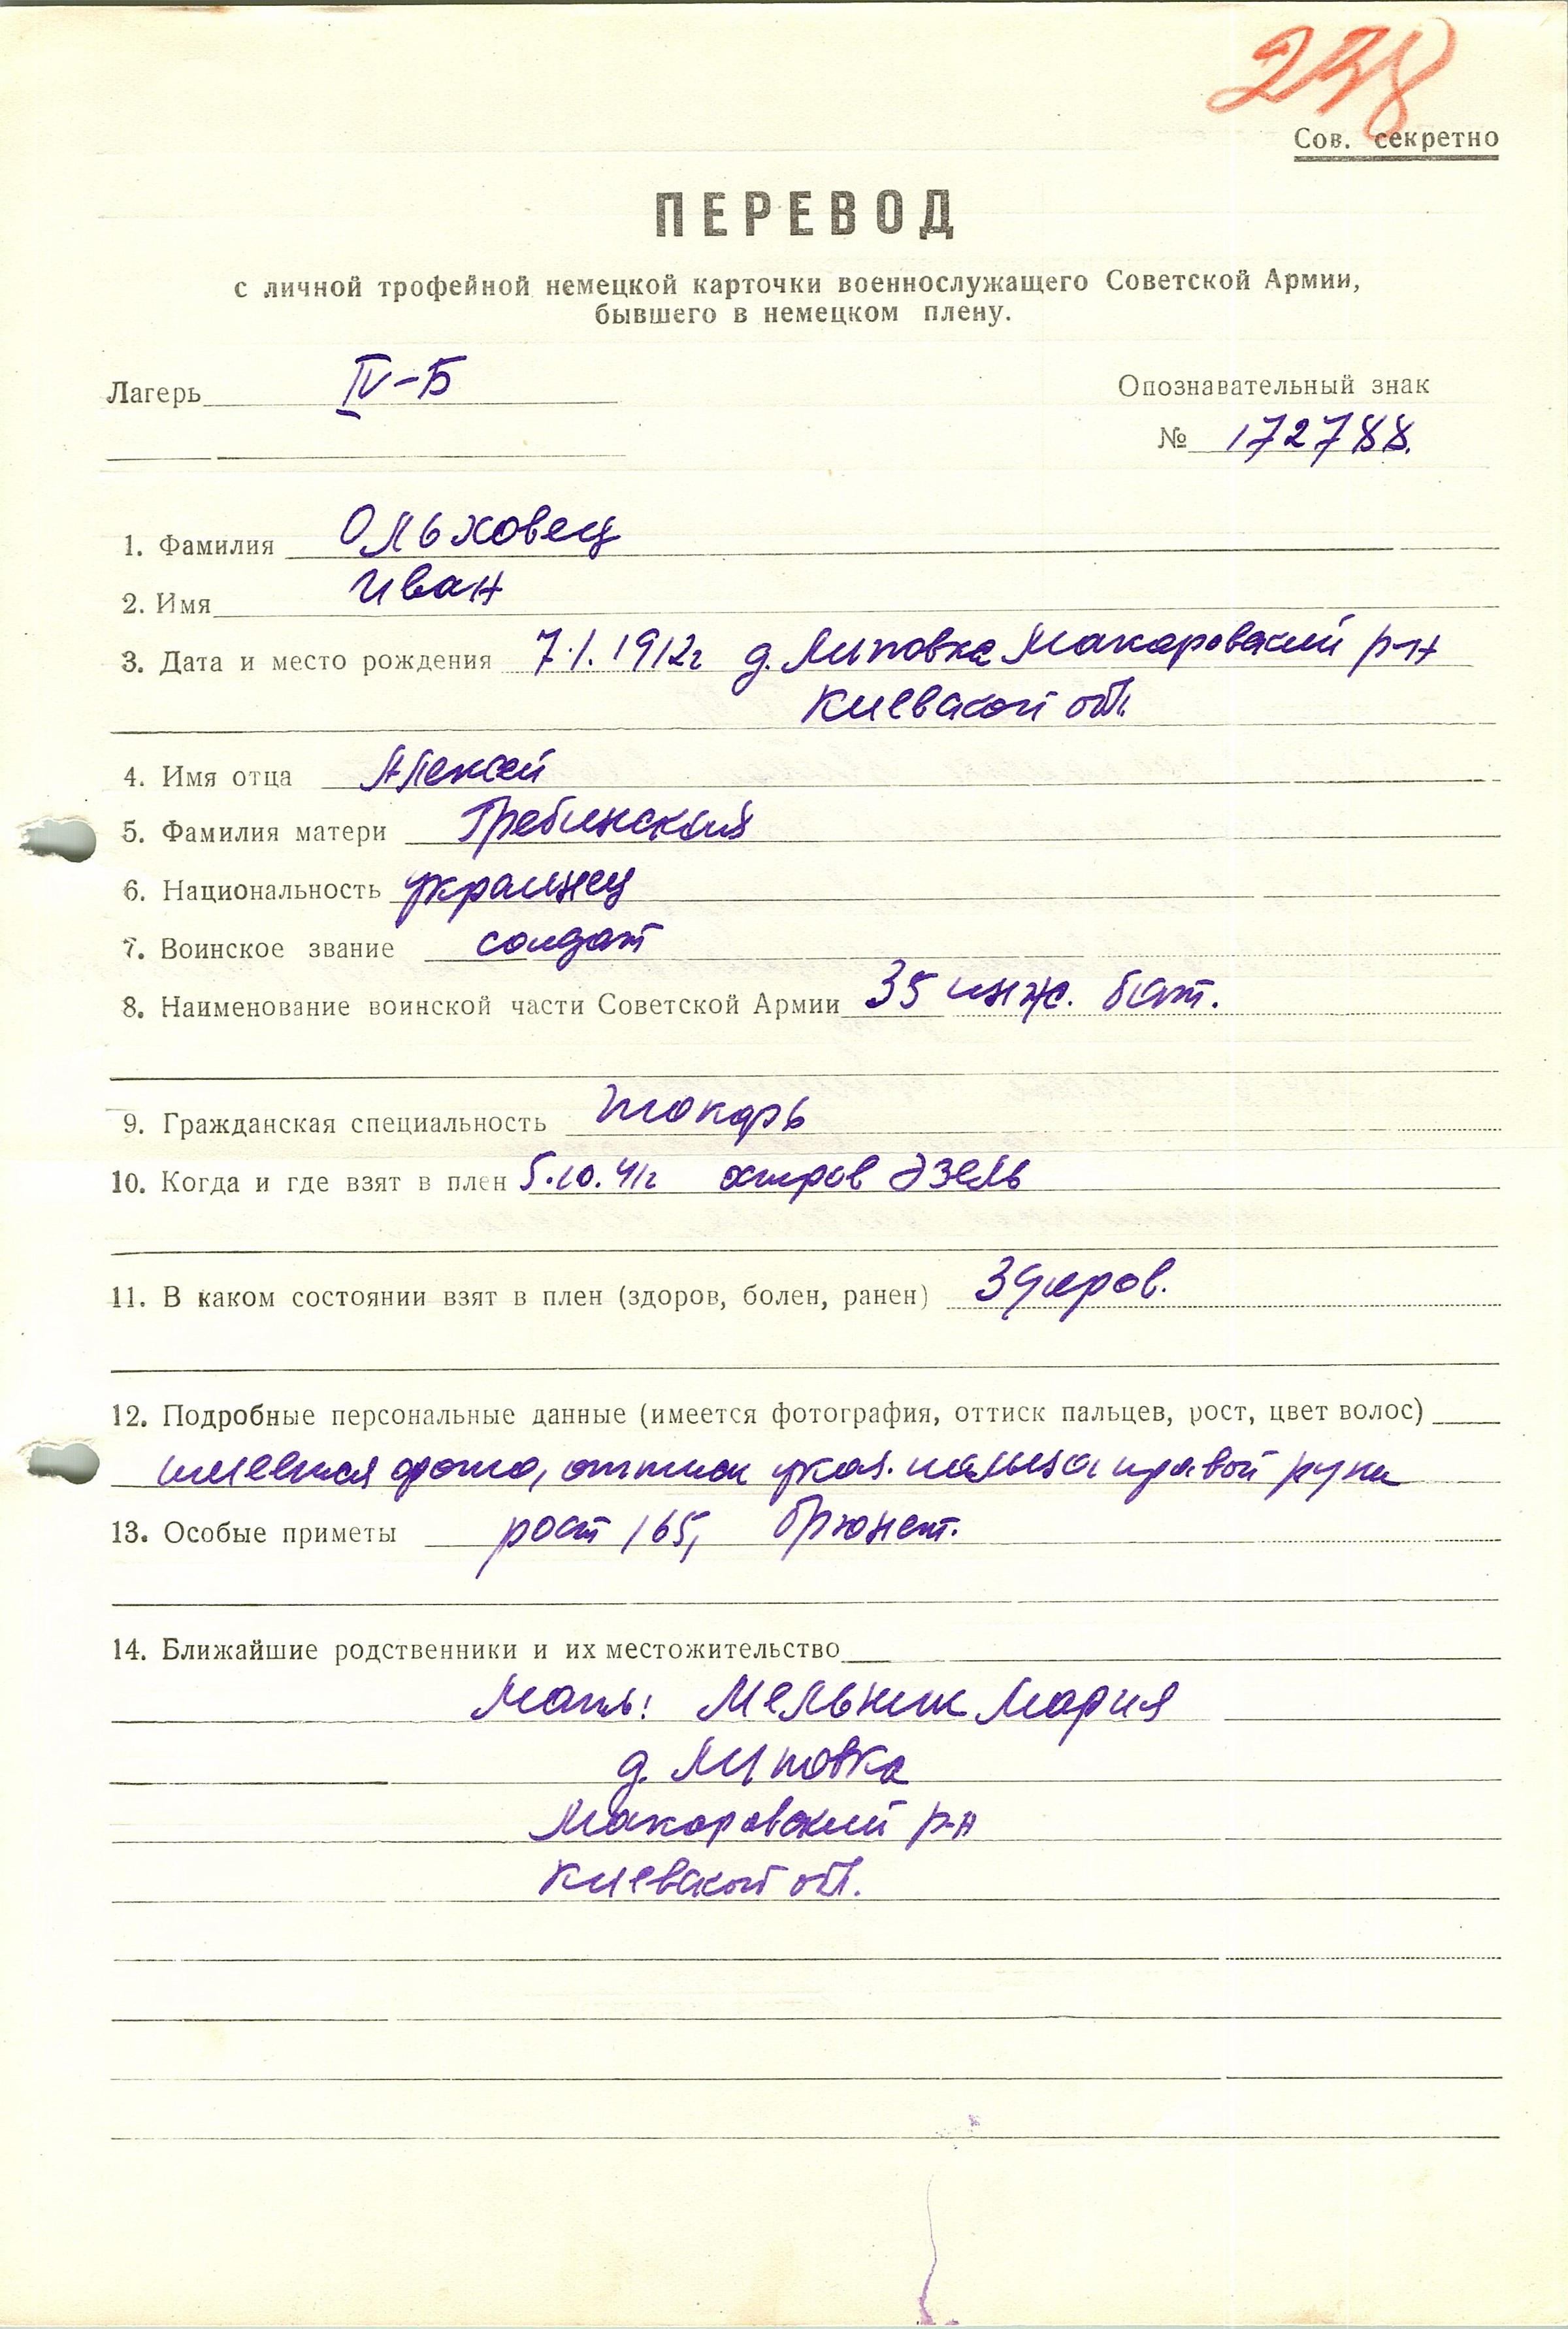 238
Сов. секретно
ПЕРЕВОД
с личной трофейной немецкой карточки военнослужащего Советской Армии,
бывшего в немецком плену.
Лагерь IV-Б
Опознавательный знак
№ 172788.
1. Фамилия Ольховец
2. Имя Иван
3. Дата и место рождения 7.1.1912г д. Липовка Макаровский р-н
Киевской обл.
4. Имя отца Алексей
5. Фамилия матери Гребинская
6. Национальность украинец
7. Воинское звание солдат
8. Наименование воинской части Советской Армии 35 инж. бат.
9. Гражданская специальность токарь
10. Когда и где взят в плен 5.10.41г остров Эзель
11. В каком состоянии взят в плен (здоров, болен, ранен) здоров.
12. Подробные персональные данные (имеется фотография, оттиск пальцев, рост, цвет волос)
имеется фото, оттиск указ. пальца правой руки
13. Особые приметы рост 165, брюнет.
14. Ближайшие родственники и их местожительство
Мать: Мельник Мария
д. Липовка
Макаровский р-н
Киевской обл.